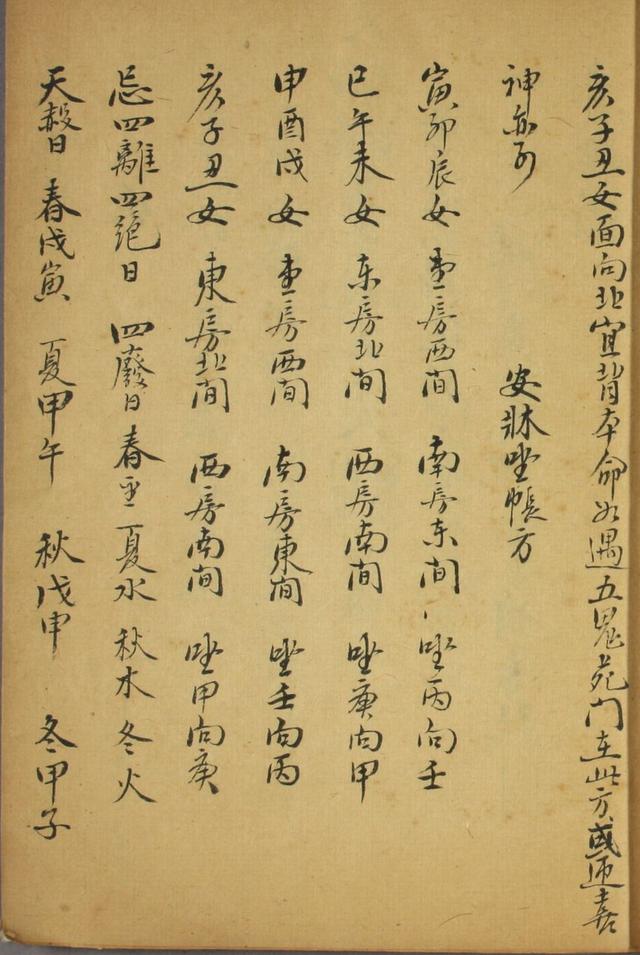 亥子丑女面向北宜背本命如遇五鬼死门在此方或迎喜
神亦可
安牀坐帳方
寅卯辰女 堂房西间 南房东间 坐丙向壬
巳午未女 东房北间 西房南间 坐庚向甲
申酉戌女 堂房西間 南房東間 坐壬向丙
亥子丑女 東房北间 西房南间 坐甲向庚
忌四離四絕日 四廢日春金夏水秋木冬火
天赦日 春戊寅 夏甲午 秋戊申 冬甲子